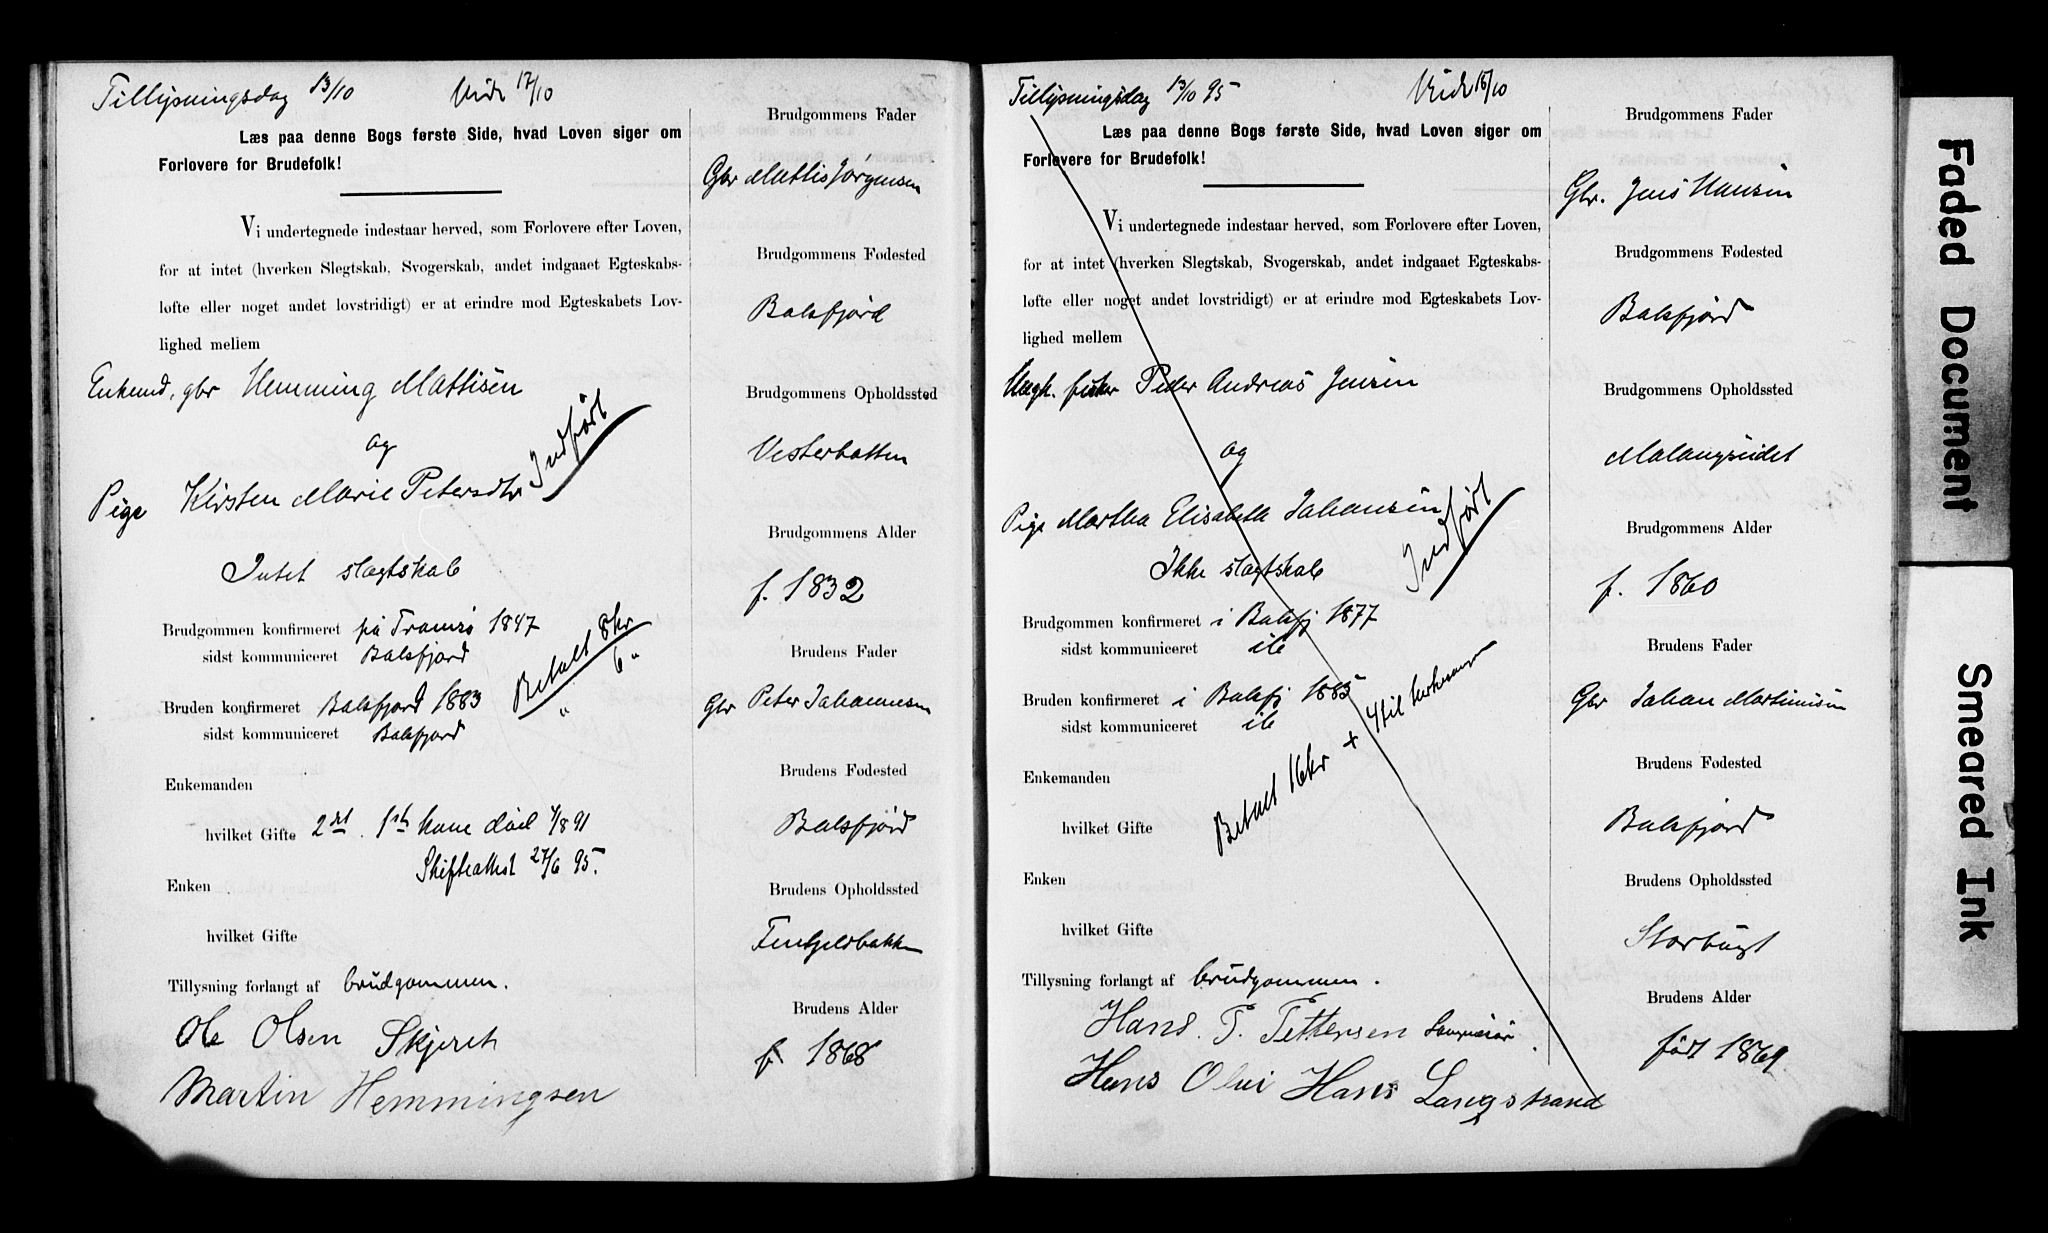 Tillysningsdag 13/10 Viede 17/10
Læs paa denne Bogs første Side, hvad Loven siger om
Forlovere for Brudefolk!
Vi undertegnede indestaar herved, som Forlovere efter Loven,
for at intet (hverken Slegtskab, Svogerskab, andet indgaaet Egteskabs-
løfte eller noget andet lovstridigt) er at erindre mod Egteskabets Lov-
lighed mellem
Enkemd, gbr Hemming Mattisen
og
Pige Kirsten Marie Petersdtr
Indført
Intet slægtskab
Brudgommen konfirmeret på Tromsø 1847
sidst kommuniceret Balsfjord
Betalt 8kr
" 6 "
Bruden konfirmeret Balsfjord 1883
sidst kommuniceret Balsfjord
Enkemanden
hvilket Gifte 2det . 1ste kone død 4/8 91
Skifteattest 27/6 95.
Enken
hvilket Gifte
Tillysning forlangt af brudgommen.
Ole Olsen Skjeret
Martin Hemmingsen
Brudgommens Fader
Gbr Mattis Jørgensen
Brudgommens Fødested
Balsfjord
Brudgommens Opholdssted
Vesterbotten
Brudgommens Alder
f. 1832
Brudens Fader
Gbr Peter Johannesen
Brudens Fødested
Balsfjord
Brudens Opholdssted
Brudens Alder
f. 1868
Tillysningsdag 13/10 95 Viede 16/10
Læs paa denne Bogs første Side, hvad Loven siger om
Forlovere for Brudefolk!
Vi undertegnede indestaar herved, som Forlovere efter Loven,
for at intet (hverken Slegtskab, Svogerskab, andet indgaaet Egteskabs-
løfte eller noget andet lovstridigt) er at erindre mod Egteskabets Lov-
lighed mellem
Ungk. fisker Peder Andreas Jensen
og
Pige Martha Elisabeth Johansen
Indført
Ikke slægtskab
Brudgommen konfirmeret i Balsfj 1877
sidst kommuniceret ib
Bruden konfirmeret i Balsfj 1885
sidst kommuniceret ib
Betalt 16kr + 4 til
Enkemanden
hvilket Gifte
Enken
hvilket Gifte
Tillysning forlangt af brudgommen.
Hans P. Pettersen
Hans Olai Hans Langstrand
Brudgommens Fader
Gbr. Jens Hansen
Brudgommens Fødested
Balsfjord
Brudgommens Opholdssted
Malangseidet
Brudgommens Alder
f. 1860
Brudens Fader
Gbr Johan Martinusen
Brudens Fødested
Balsfjord
Brudens Opholdssted
Storbugt
Brudens Alder
født 1869
Faded Document
Smeared Ink